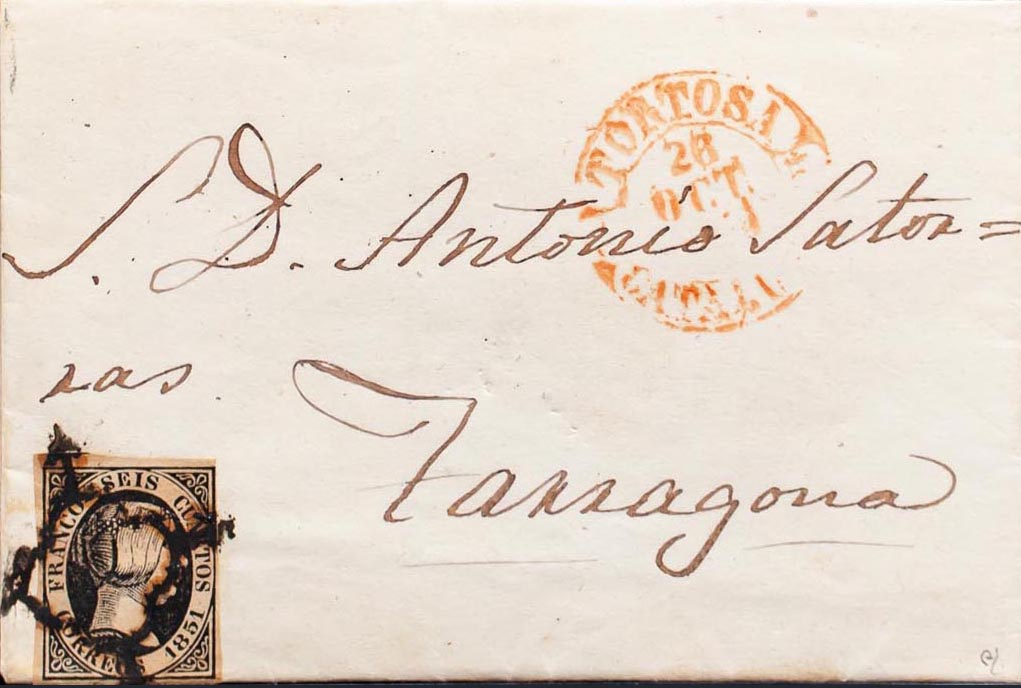 TORTOSA
26
OCT.
S. D. Antonio Sator=
ras.
Tarragona
FRANCO SEIS CUARTOS
CORREOS 1851